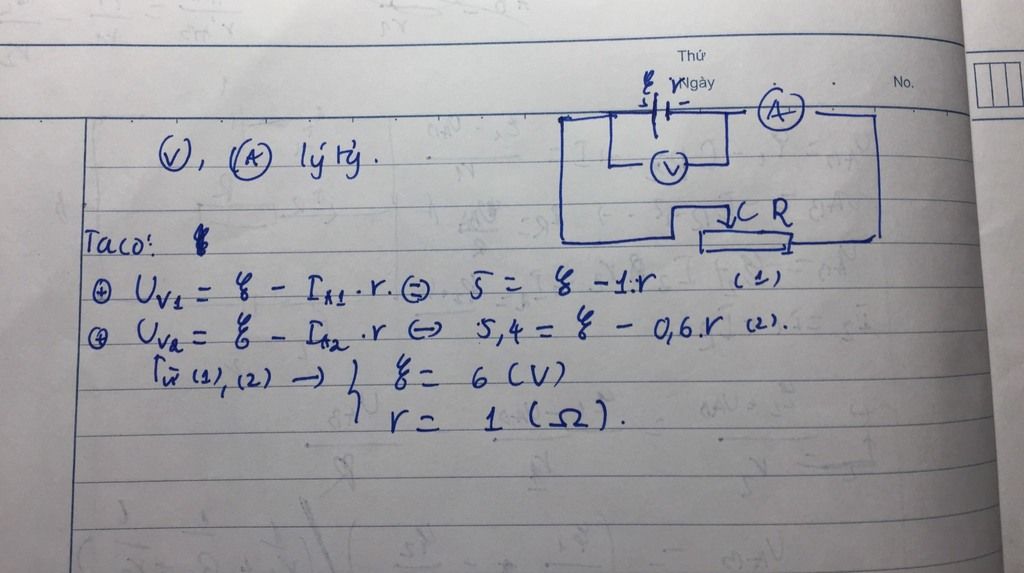 Thứ
Ngày
No.
ξ r
+ -
A
V
C R
(V), (A) lý tg.
Ta có:
⊕ U_V1 = ξ - I_A1 . r. ⇔ 5 = ξ - 1.r (1)
⊕ U_V2 = ξ - I_A2 . r ⇔ 5,4 = ξ - 0,6.r (2).
Từ (1), (2) → } ξ = 6 (V)
r = 1 (Ω).